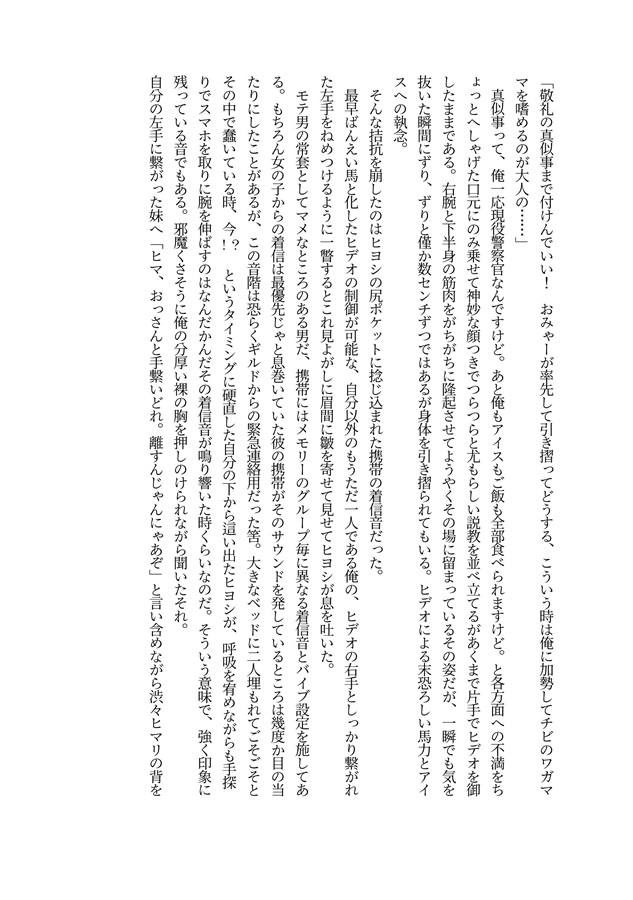 「敬礼の真似事まで付けんでいい！　おみゃーが率先して引き摺ってどうする、こういう時は俺に加勢してチビのワガマ
マを嗜めるのが大人の……」
　真似事って、俺一応現役警察官なんですけど。あと俺もアイスもご飯も全部食べられますけど。と各方面への不満をち
ょっとへしゃげた口元にのみ乗せて神妙な顔つきでつらつらと尤もらしい説教を並べ立てるがあくまで片手でヒデオを御
したままである。右腕と下半身の筋肉をがちがちに隆起させてようやくその場に留まっているその姿だが、一瞬でも気を
抜いた瞬間にずり、ずりと僅か数センチずつではあるが身体を引き摺られてもいる。ヒデオによる末恐ろしい馬力とアイ
スへの執念。
　そんな拮抗を崩したのはヒヨシの尻ポケットに捻じ込まれた携帯の着信音だった。
　最早ばんえい馬と化したヒデオの制御が可能な、自分以外のもうただ一人である俺の、ヒデオの右手としっかり繋がれ
た左手をねめつけるように一瞥するとこれ見よがしに眉間に皺を寄せて見せてヒヨシが息を吐いた。
　モテ男の常套としてマメなところのある男だ、携帯にはメモリーのグループ毎に異なる着信音とバイブ設定を施してあ
る。もちろん女の子からの着信は最優先じゃと息巻いていた彼の携帯がそのサウンドを発しているところは幾度か目の当
たりにしたことがあるが、この音階は恐らくギルドからの緊急連絡用だった筈。大きなベッドに二人埋もれてごそごそと
その中で蠢いている時、今！？　というタイミングに硬直した自分の下から這い出たヒヨシが、呼吸を宥めながらも手探
りでスマホを取りに腕を伸ばすのはなんだかんだその着信音が鳴り響いた時くらいなのだ。そういう意味で、強く印象に
残っている音でもある。邪魔くさそうに俺の分厚い裸の胸を押しのけられながら聞いたそれ。
自分の左手に繋がった妹へ「ヒマ、おっさんと手繋いどれ。離すんじゃんにゃあぞ」と言い含めながら渋々ヒマリの背を